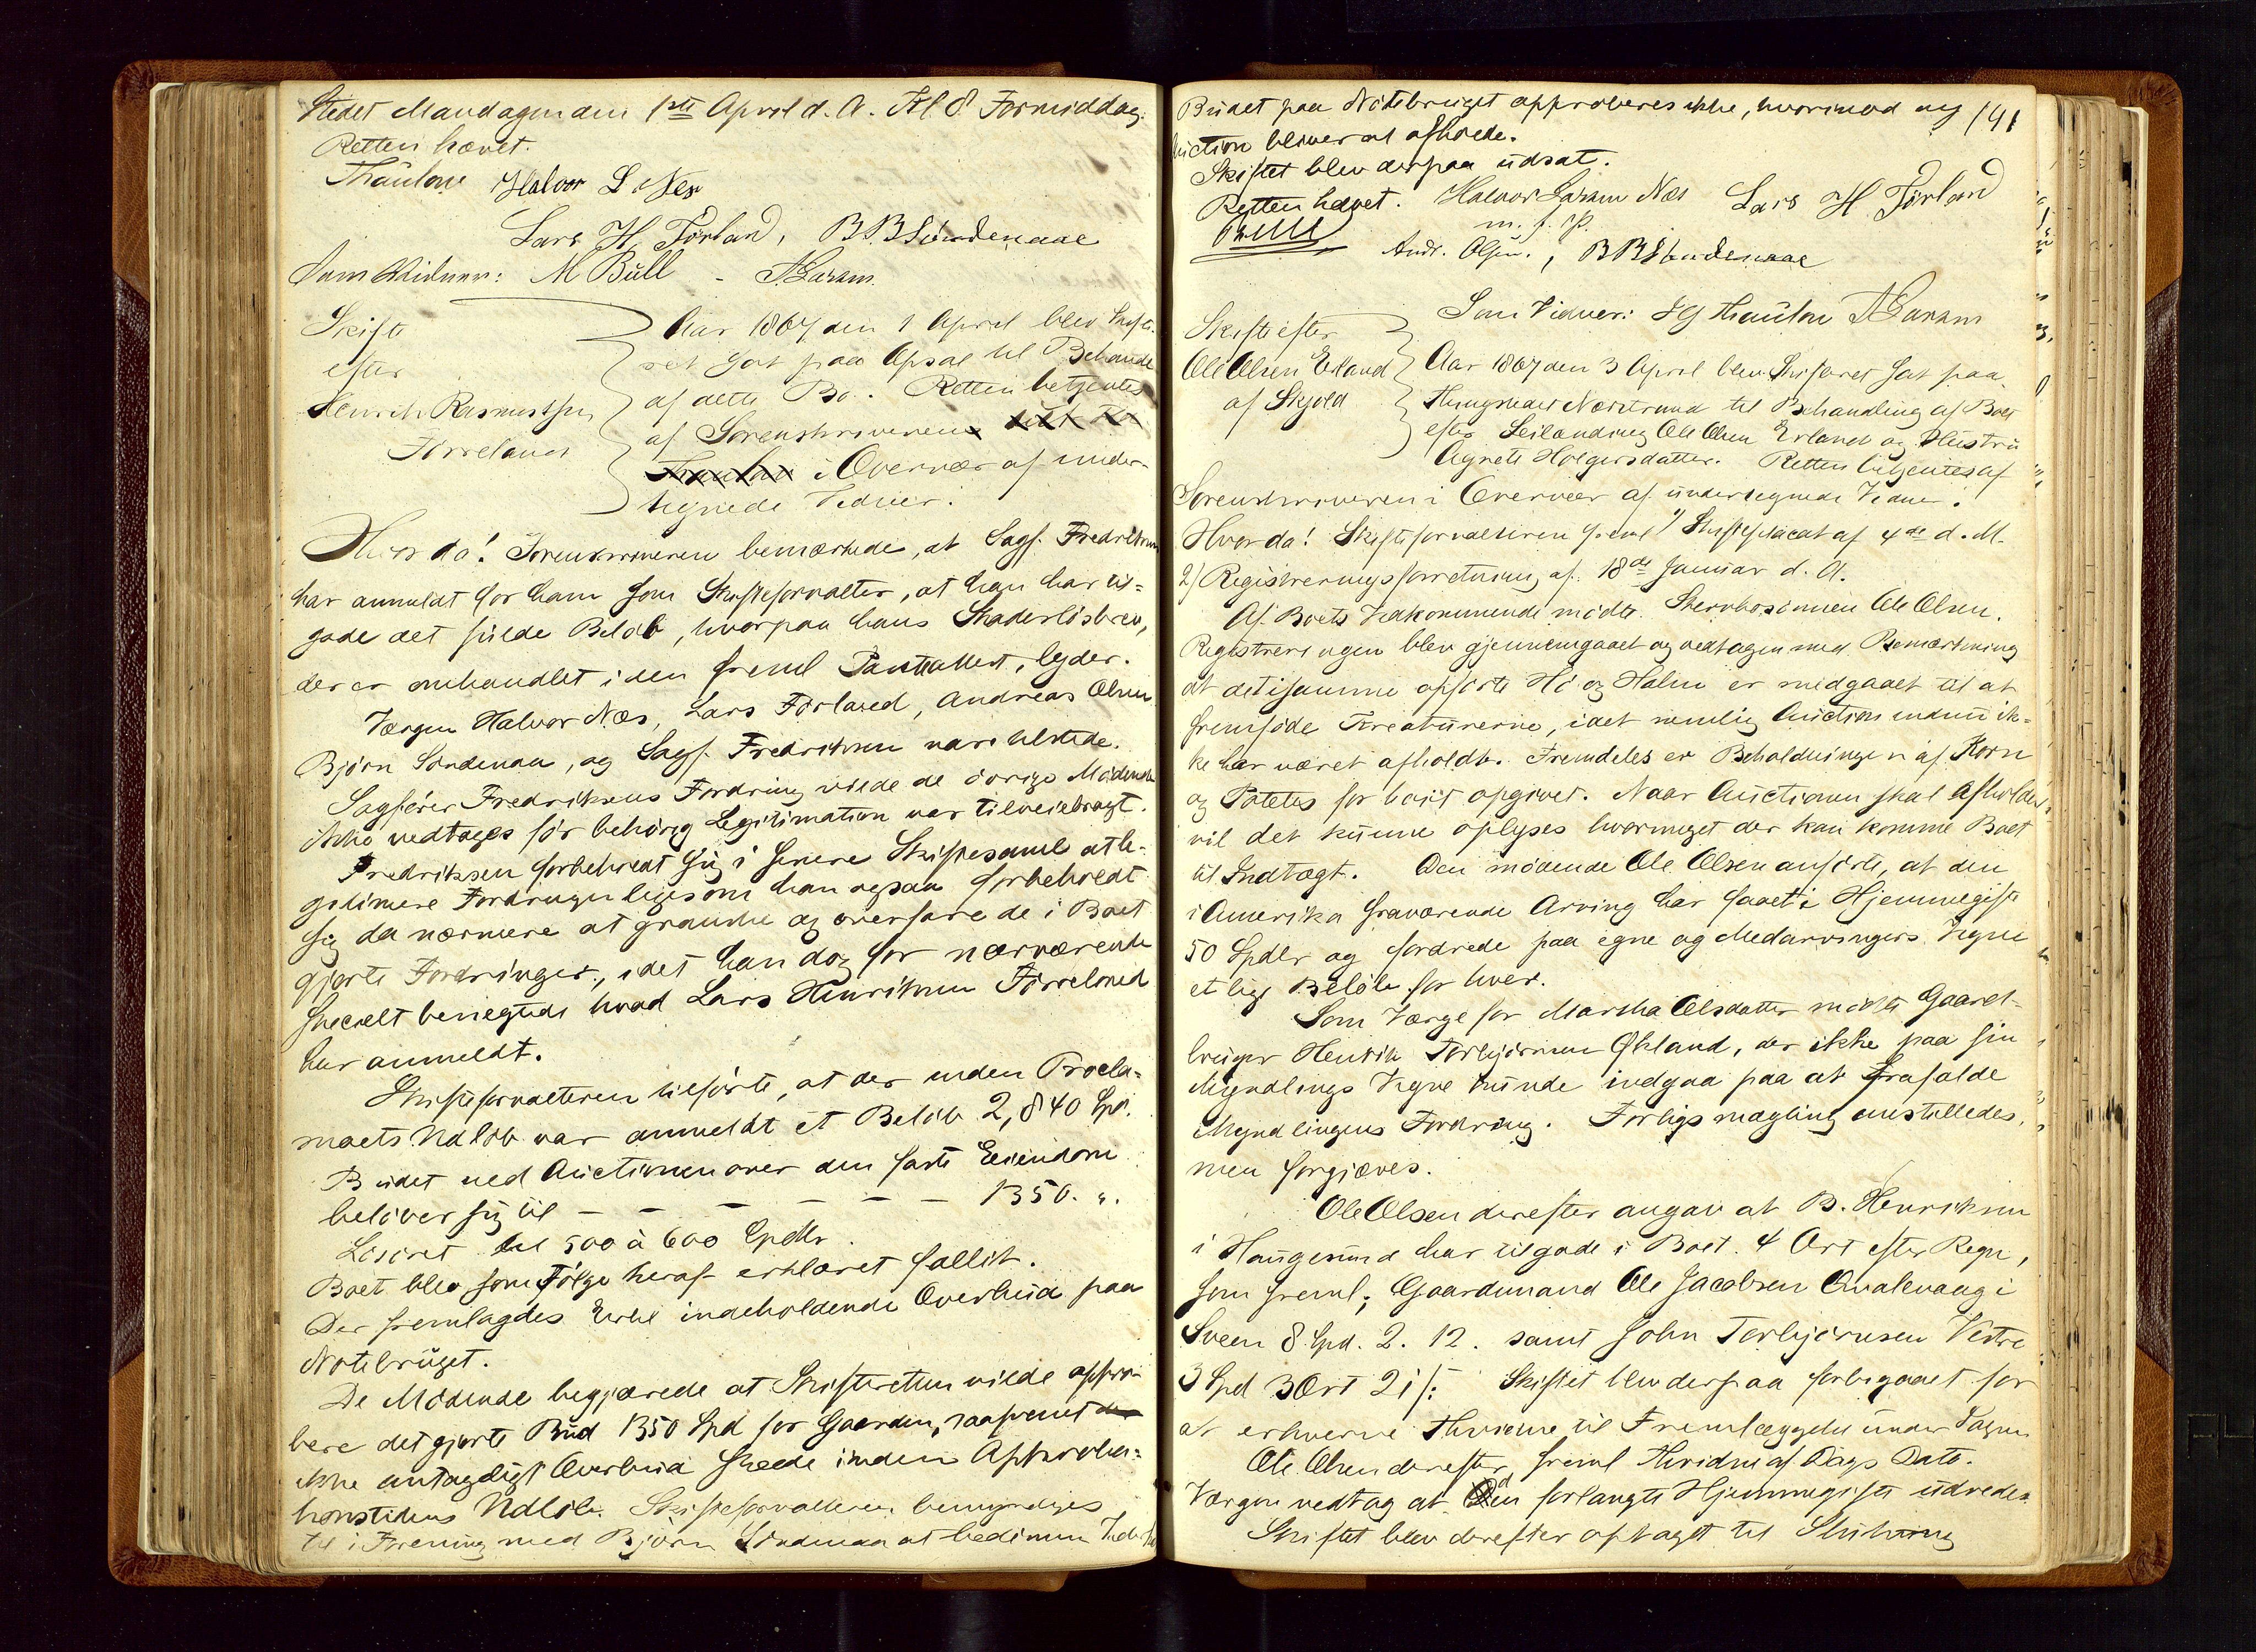 Stedet Mandagen den 1ste April d. A. Kl 8 Formiddag.
Retten hævet.
Thaulow Halvor L Næs
Lars H. Førland, B B Søndenaae
Som Vidner: M Bull - Larsen
Skift
efter
Henrich Rasmussen
Førreland
Aar 1867 den 1 April blev Skifte-
ret sat paa Opsal til Behandl
af dette Bo. Retten betjentes
af Sorenskriveren
i Overvær af under-
tegnede Vidner.
Hvor da! Sorenskriveren bemærkede, at Sagf. Fredriksen
har anmeldt for ham som Skifteforvalter, at han har til-
gode det fulde Beløb, hvorpaa hans Skadesløsbrev,
der er omhandlet i den freml Panteattest, lyder.
Værgen Halvor Næs, Lars Førland, Andreas Olsen
Bjørn Søndenaa, og Sagf. Fredriksen var tilstede.
Sagfører Fredriksens Fordring vilde de øvrige Mødende
ikke vedtages før behørig Legitimation var tilveiebragt.
Fredriksen forbeholdt sig i senere Skiftesaml at le-
gitimere Fordringen ligesom han ogsaa forbeholdt
sig da nærmere at granske og overfare de i Boet
gjorte Fordringer, idet han dog for nærværende
specielt benegtede hvad Lars Henriksen Førreland
har anmeldt.
Skifteforvalteren tilførte, at der inden Procla-
maets Udløb var anmeldt et Beløb 2,840 Spd.
Budet ved Auctionen over den faste Eiendom
beløber sig til - - - - - - 1350. ".
Løsøret til 500 à 600 Spdlr.
Boet blev som Følge heraf erklæret fallit.
Der fremlagdes indeholdende Overbud paa
Notebruget.
De Mødende begjærede at Skifteretten vilde appro-
bere det gjorte Bud 1350 Spd for Gaarden, saafremt
ikke antageligt Overbud skeede inden Approba-
tionstidens Udløb. Skifteforvalteren bemyndiges
til i Forening med Bjørn Søndenaa at bedømme
Budet paa Notebruget approberes ikke, hvorimod ny 191
Auction bliver at afholde.
Skiftet blev derpaa udsat.
Retten hævet. Halvor Larsen Næs Lars H. Førland
m. f. P.
Andr. Olsen., B B Søndenaae
Som Vidner: Thaulow Larsen
Skifte efter
Ole Olsen Erland
af Skjold
Aar 1867 den 3 April blev Skifteret sat paa
Thingstedet Nærstrand til Behandling af Boet
efter Leilænding Ole Olsen Erland og Hustru
Agnete Holgersdatter. Retten betjentes af
Sorenskriveren i Overvær af undertegnede Vidner.
Hvor da! Skifteforvalteren freml 1) Skifteplacat af 4de d. M.
2) Registreringsforretning af 18de Januar d. A.
Af Boets Vedkommende mødte Stervbosønnen Ole Olsen.
Registreringen blev gjennemgaaet og vedtagen med Bemærkning
at det i samme opførte Hø og Halm er medgaaet til at
fremføde Kreaturerne, idet nemlig Auction endnu ik-
ke har været afholdt. Fremdeles er Beholdningen af Korn
og Potetes for høit opgivet. Naar Auctionen skal afholdes,
vil det kunne oplyses hvormeget der kan komme Boet
til Indtægt. Den mødende Ole Olsen anførte, at den
i Amerika fraværende Arving har faaet i Hjemmegift
50 Spdlr og fordrede paa egne og Medarvingers Vegne
et lige Beløb for hver.
Som Værge for Martha Olsdatter mødte Gaard-
bruger Henrik Torbjørnsen Økland, der ikke paa sin
Myndlings Vegne kunde indgaa paa at frafalde
Myndlingens Fordring. Forligsmægling anstilledes,
men forgjæves.
Ole Olsen derefter angav at B. Henriksen
i Haugesund har tilgode i Boet 4 Ort efter Regn,
som freml; Gaardmand Ole Jacobsen Qvalevaag i
Sveen 8 Spd. 2. 12. samt John Torbjørnsen Vestre
3 Spd 3 Ort 21 s. Skiftet blev derpaa forbigaaet for
at erhverve til Fremlæggelse under Sagen
Ole Olsen derefter freml af Dags Dato.
Værgen vedtog at den forlangte Hjemmegift udredes.
Skiftet blev derefter optaget til Slutning